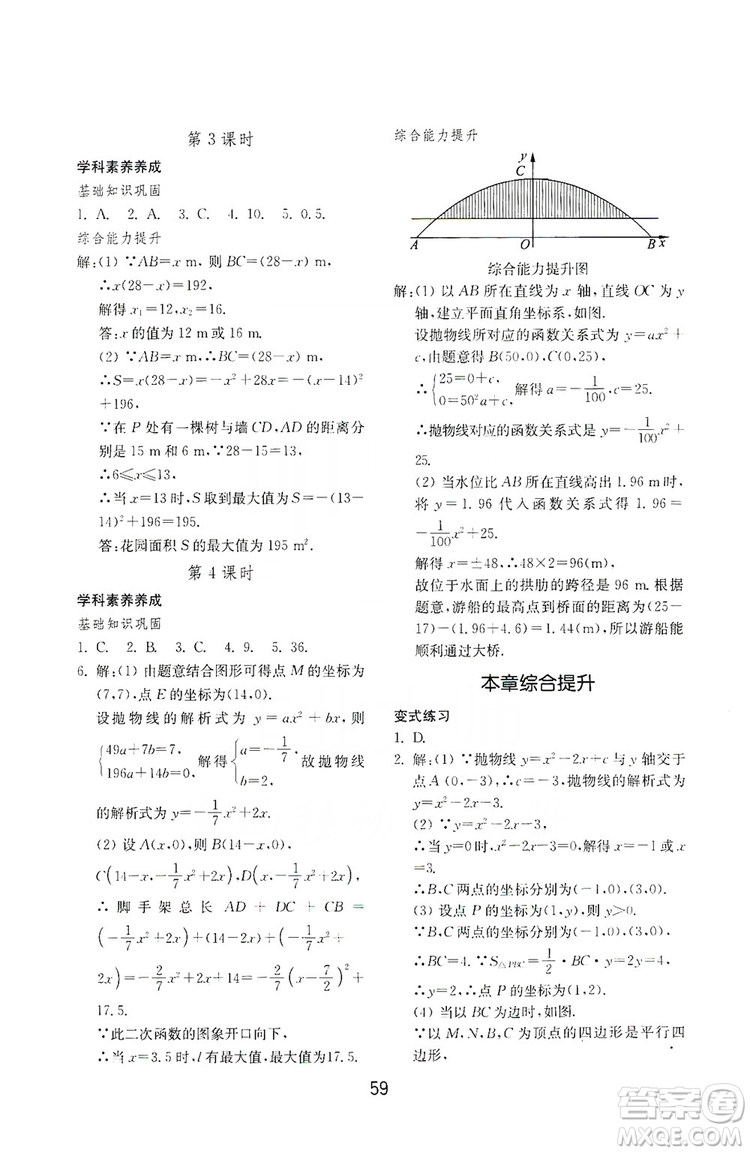 第3课时
学科素养养成
基础知识巩固
1. A. 2. A. 3. C. 4. 10. 5. 0.5.
综合能力提升
解:(1) ∵AB=x m, 则 BC=(28-x) m,
∴x(28-x)=192,
解得 x₁=12,x₂=16.
答:x 的值为 12 m 或 16 m.
(2) ∵AB=x m,∴BC=(28-x) m,
∴S=x(28-x)=-x²+28x=-(x-14)²
+196,
∵在 P 处有一棵树与墙 CD,AD 的距离分
别是 15 m 和 6 m, ∵28-15=13,
∴6≤x≤13,
∴当 x=13 时,S 取到最大值为 S=-(13-
14)²+196=195.
答:花园面积 S 的最大值为 195 m².
第4课时
学科素养养成
基础知识巩固
1. C. 2. B. 3. C. 4. 9. 5. 36.
6. 解:(1) 由题意结合图形可得点 M 的坐标为
(7,7),点 E 的坐标为(14,0).
设抛物线的解析式为 y=ax²+bx, 则
{49a+7b=7, 196a+14b=0, 解得{a=-1/7, b=2, 故抛物线
的解析式为 y=-1/7x²+2x.
(2) 设 A(x,0),则 B(14-x,0),
C(14-x,-1/7x²+2x),D(x,-1/7x²+2x),
∴ 脚手架总长 AD + DC + CB =
(-1/7x²+2x)+(14-2x)+
(-1/7x²+2x)=-2/7(x-7/2)²+
17.5.
∵此二次函数的图象开口向下,
∴当 x=3.5 时,l 有最大值,最大值为17.5.
综合能力提升
y
C
A
O
B
x
综合能力提升图
解:(1) 以 AB 所在直线为 x 轴,直线 OC 为 y
轴,建立平面直角坐标系,如图.
设抛物线所对应的函数关系式为 y=ax²+
c,由题意可得 B(50,0),C(0,25),
∴{25=0+c, 0=50²a+c, 解得 a=-1/100,c=25.
∴抛物线对应的函数关系式是 y=-1/100x²+
25.
(2) 当水位比 AB 所在直线高出 1.96 m 时,
将 y=1.96 代入函数关系式得 1.96=
-1/100x²+25.
解得 x=±48,∴48×2=96(m),
故位于水面上的拱肋的跨径是 96 m. 根据
题意,游船的最高点到桥面的距离为(25-
17)-(1.96+4.6)=1.44(m),所以游船能
顺利通过大桥.
本章综合提升
变式练习
1. D.
2. 解:(1) ∵抛物线 y=x²-2x+c 与 y 轴交于
点 A(0,-3),∴c=-3,∴抛物线的解析式
为 y=x²-2x-3.
(2) ∵y=x²-2x-3,
∴当 y=0 时,x²-2x-3=0,解得 x=-1 或 x
=3.
∴B,C 两点的坐标分别为(-1,0),(3,0).
(3) 设点 P 的坐标为(1,y),则 y>0.
∵B,C 两点的坐标分别为(-1,0),(3,0),
∴BC=4. ∵S△PBC=1/2·BC·y=4,
∴y=2,∴点 P 的坐标为(1,2).
(4) 当以 BC 为边时,如图.
∵以 M,N,B,C 为顶点的四边形是平行四
边形,
59
答案圈
MXQE.COM